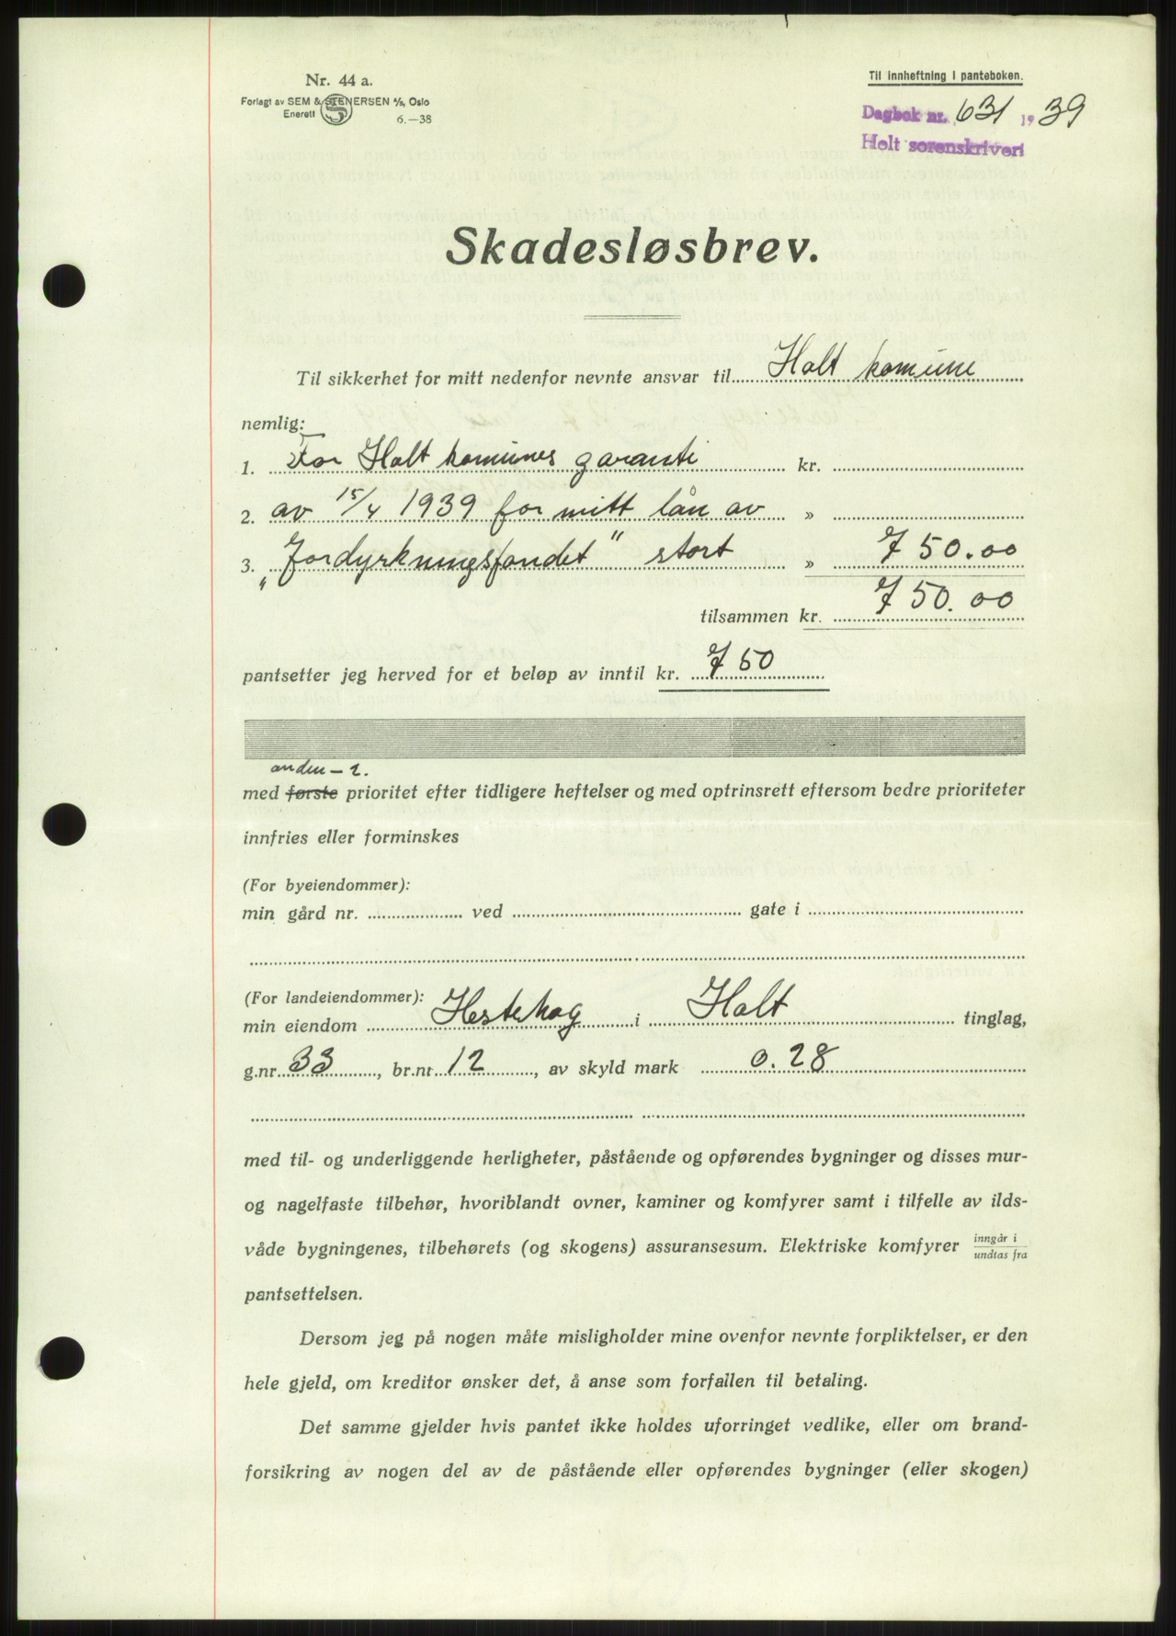 Nr. 44 a.
Forlagt av SEM & STENERSEN A/S, Oslo
Enerett
6.—38
Til innheftning i panteboken.
Dagbok nr. 631 1939
Holt sorenskriveri
Skadesløsbrev.
Til sikkerhet for mitt nedenfor nevnte ansvar til Holt komune
nemlig:
1. For Holt komunes garanti kr.
2. av 15/4 1939 for mitt lån av »
3. „Jordyrkningsfondet" stort » 750.00
tilsammen kr. 750.00
pantsetter jeg herved for et beløp av inntil kr. 750
anden - 2.
med første prioritet efter tidligere heftelser og med optrinsrett eftersom bedre prioriteter
innfries eller forminskes
(For byeiendommer):
min gård nr. ved gate i
(For landeiendommer):
min eiendom Hestehag i Holt tinglag,
g.nr. 33, br.nr 12, av skyld mark 0.28
med til- og underliggende herligheter, påstående og opførendes bygninger og disses mur-
og nagelfaste tilbehør, hvoriblandt ovner, kaminer og komfyrer samt i tilfelle av ilds-
våde bygningenes, tilbehørets (og skogens) assuransesum. Elektriske komfyrer inngår i / undtas fra
pantsettelsen.
Dersom jeg på nogen måte misligholder mine ovenfor nevnte forpliktelser, er den
hele gjeld, om kreditor ønsker det, å anse som forfallen til betaling.
Det samme gjelder hvis pantet ikke holdes uforringet vedlike, eller om brand-
forsikring av nogen del av de påstående eller opførendes bygninger (eller skogen)